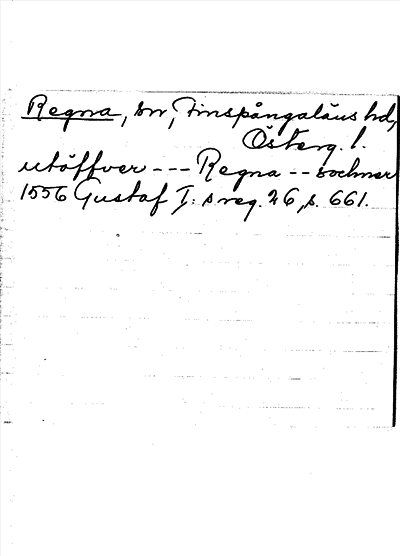 Regna, sn, Finspångaläns hd,
Österg. l.
utöffver --- Regna -- sochner
1556 Gustaf I:s reg. 26, s. 661.